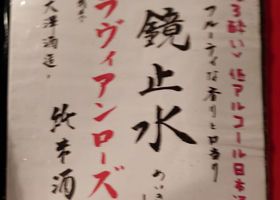 ろ酔い)低アルコール日本酒
フルーティな香りと口当り
鏡止水
ラヴィアンローズ
大澤酒造・
純米酒